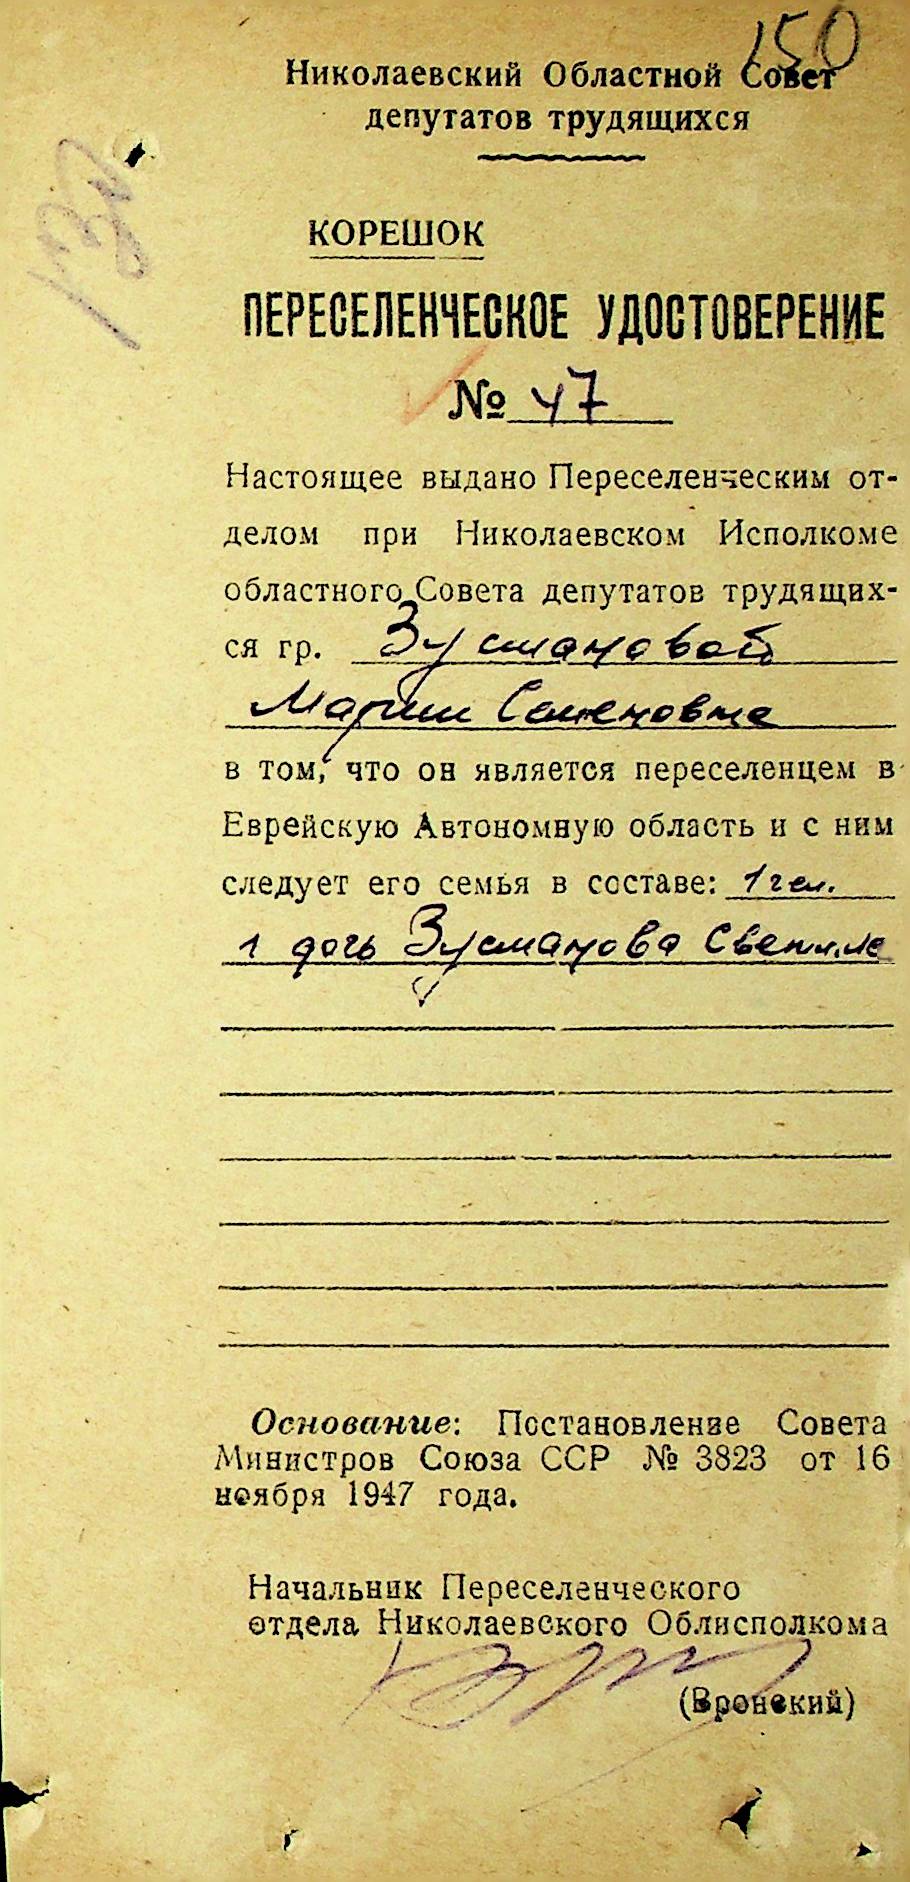 150
Николаевский Областной Совет
депутатов трудящихся
КОРЕШОК
ПЕРЕСЕЛЕНЧЕСКОЕ УДОСТОВЕРЕНИЕ
№ 47
Настоящее выдано Переселенческим от-
делом при Николаевском Исполкоме
областного Совета депутатов трудящих-
ся гр. Зусмановой
Марии Семеновне
в том, что он является переселенцем в
Еврейскую Автономную область и с ним
следует его семья в составе: 1 чел.
1 дочь Зусманова
Основание: Постановление Совета
Министров Союза ССР № 3823 от 16
ноября 1947 года.
Начальник Переселенческого
отдела Николаевского Облисполкома
(Вронский)